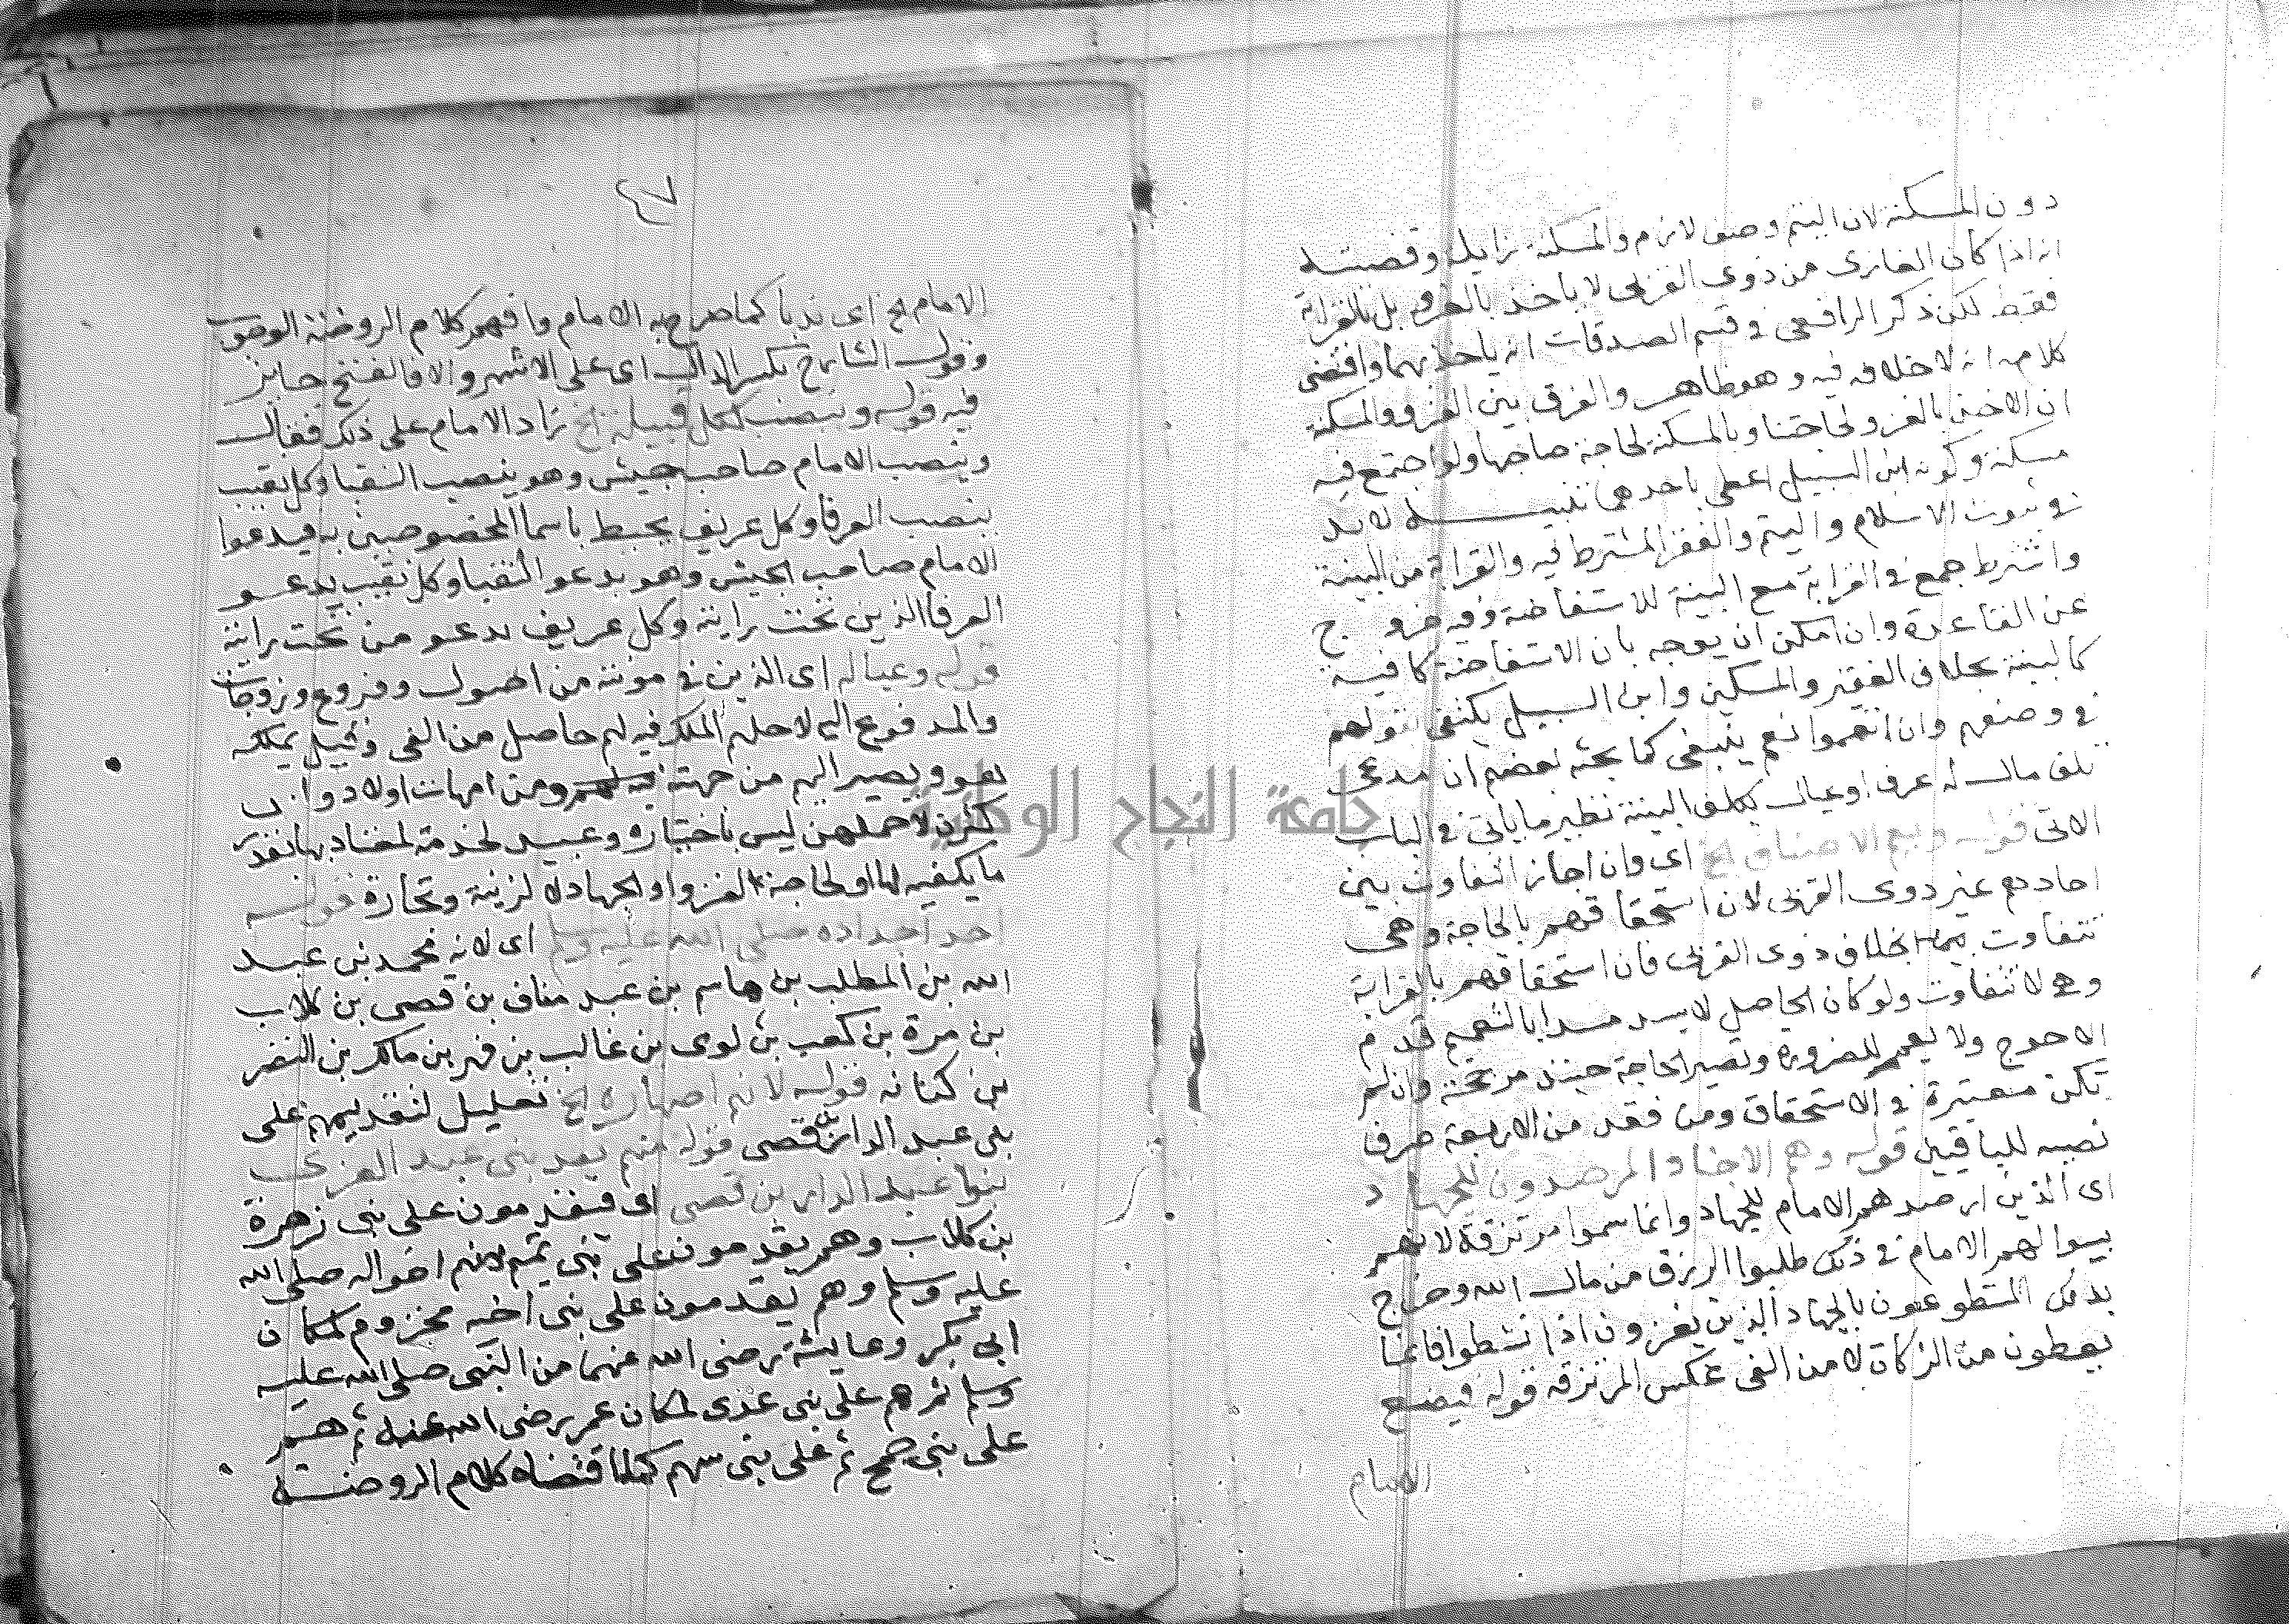 دون المسكنة لان اليتم وصف لازم والمسكنة زايلة وقضيته
انه اذا كان الغازى من ذوى القربى لا ياخذ بالغزو بل بالقرابة
فقط لكن ذكر الرافعى فى قسم الصدقات انه ياخذ بهما واقتضى
كلامه انه لا خلاف فيه وهو ظاهر والفرق بين الغزو والمسكنة
ان الاخذ بالغزو لحاجتنا وبالمسكنة لحاجة صاحبها ولو اجتمع فيه
مسكنة وكونه ابن السبيل اعطى باحدهما تنبيه لا بد
فى ثبوت الاسلام واليتم والفقر المشترط فيه والقرابة من البينة
واشترط جمع فى القرابة مع البينة للاستفاضة وفيه خروج
عن القاعدة وان امكن ان يوجه بان الاستفاضة كافية
كالبينة بخلاف الفقير والمسكين وابن السبيل يكتفى بقولهم
فى وصفهم وان اتهموا نعم ينبغى كما بحثه بعضهم ان مدعى
تلف مال له عرف او عيال يكلف البينة نظير ما ياتى فى الباب
الاتى قوله ويعم الاصناف الخ اى وان اجاز التفاوت بين
احادهم غير ذوى القربى لان استحقاقهم بالحاجة وهى
تتفاوت بخلاف ذوى القربى فان استحقاقهم بالقرابة
وهى لا تتفاوت ولو كان الحاصل لا يسد مسدا بالتعميم قدم
الاحوج ولا يعمم للضرورة وتصير الحاجة حينئذ مرجحة وان لم
تكن معتبرة فى الاستحقاق ومن فقد من الاربعة صرف
نصيبه للباقين قوله وهم الاجناد المرصدون للجهاد
اى الذين ارصدهم الامام للجهاد وانما سموا مرتزقة لانهم
الامام فى ذلك طلبوا الرزق من مال الله وخرج
بذلك المتطوعون بالجهاد الذين يغزون اذا نشطوا فانما
يعطون من الزكاة لا من الفى عكس المرتزقه قوله فيضع
الامام
٤٧
الامام الخ اى ندبا كما صرح به الامام وافهم كلام الروضة الوجوب
وقول الشارح بكسر الدال اى على الاشهر والا فالفتح جايز
فيه قوله وينصب لكل قبيلة الخ زاد الامام على ذلك فقال
وينصب الامام صاحب جيش وهو ينصب النقبا وكل نقيب
ينصب العرفا وكل عريف يحيط باسما المخصوصين به فيدعوا
الامام صاحب الجيش وهو يدعو النقبا وكل نقيب يدعو
العرفا الذين تحت رايته وكل عريف يدعو من تحت رايته
قوله وعياله اى الذين فى مونته من اصول وفروع وزوجات
والمدفوع اليه لاجلهم الملك فيه لهم حاصل من الفى وقيل يملكه
هو ويصير اليهم من جهته ومن امهات اولاد وان
كثرن لان حملهن ليس باختياره وعبيد لخدمة لمعتاد بها نقدر
ما يكفيه لها او لحاجة الغزو او الجهاد لا لزينة وتجارة قوله
احد اجداده صلى الله عليه وسلم اى لانه محمد بن عبد
الله بن المطلب بن هاشم بن عبد مناف بن قصى بن كلاب
بن مرة بن كعب بن لوى بن غالب بن فهر بن مالك بن النضر
بن كنانه قوله لانهم اصهاره الخ تعليل لتقديمهم على
بنى عبد الدار بن قصى قوله ثم بعد بنى عبد العزى
بنوا عبد الدار بن قصى اى فيقدمون على بنى زهرة
بن كلاب وهم يقدمون على بنى تيم لانهم اخواله صلى الله
عليه وسلم وهم يقدمون على بنى اخيه مخزوم لمكان
ابى بكر وعايشة رضى الله عنهما من النبى صلى الله عليه
وسلم ثم هم على بنى عدى لمكان عمر رضى الله عنه ثم هم
على بنى جمح ثم على بنى سهم كما اقتضاه كلام الروضة
جامعة النجاح الوطنية